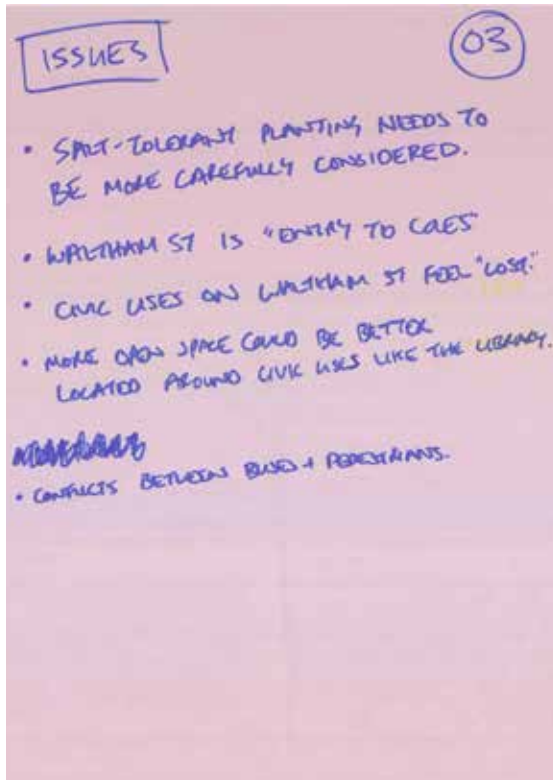 ISSUES
03
• SALT-TOLERANT PLANTING NEEDS TO
BE MORE CAREFULLY CONSIDERED.
• WALTHAM ST IS "ENTRY TO COLES"
• CIVIC USES ON WALTHAM ST FEEL "LOST."
• MORE OPEN SPACE COULD BE BETTER
LOCATED AROUND CIVIC USES LIKE THE LIBRARY.
• CONFLICTS BETWEEN BUSES + PEDESTRIANS.